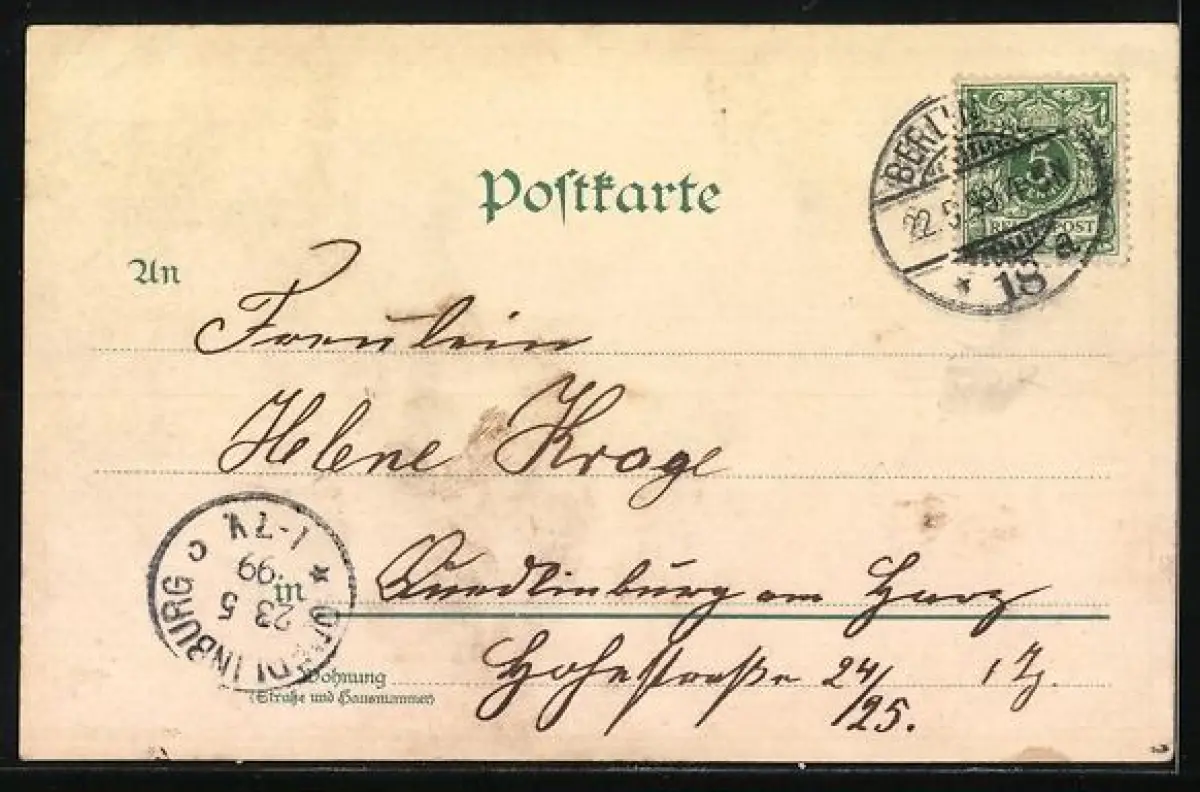 Postkarte
BERLIN
22.5.99
18 a
5
REICHSPOST
An
Freulein
Helene Kroge
in Quedlinburg am Harz
Wohnung
(Straße und Hausnummer)
Hohestraße 24/
/25.
QUEDLINBURG c
23 5
99
1-7V.